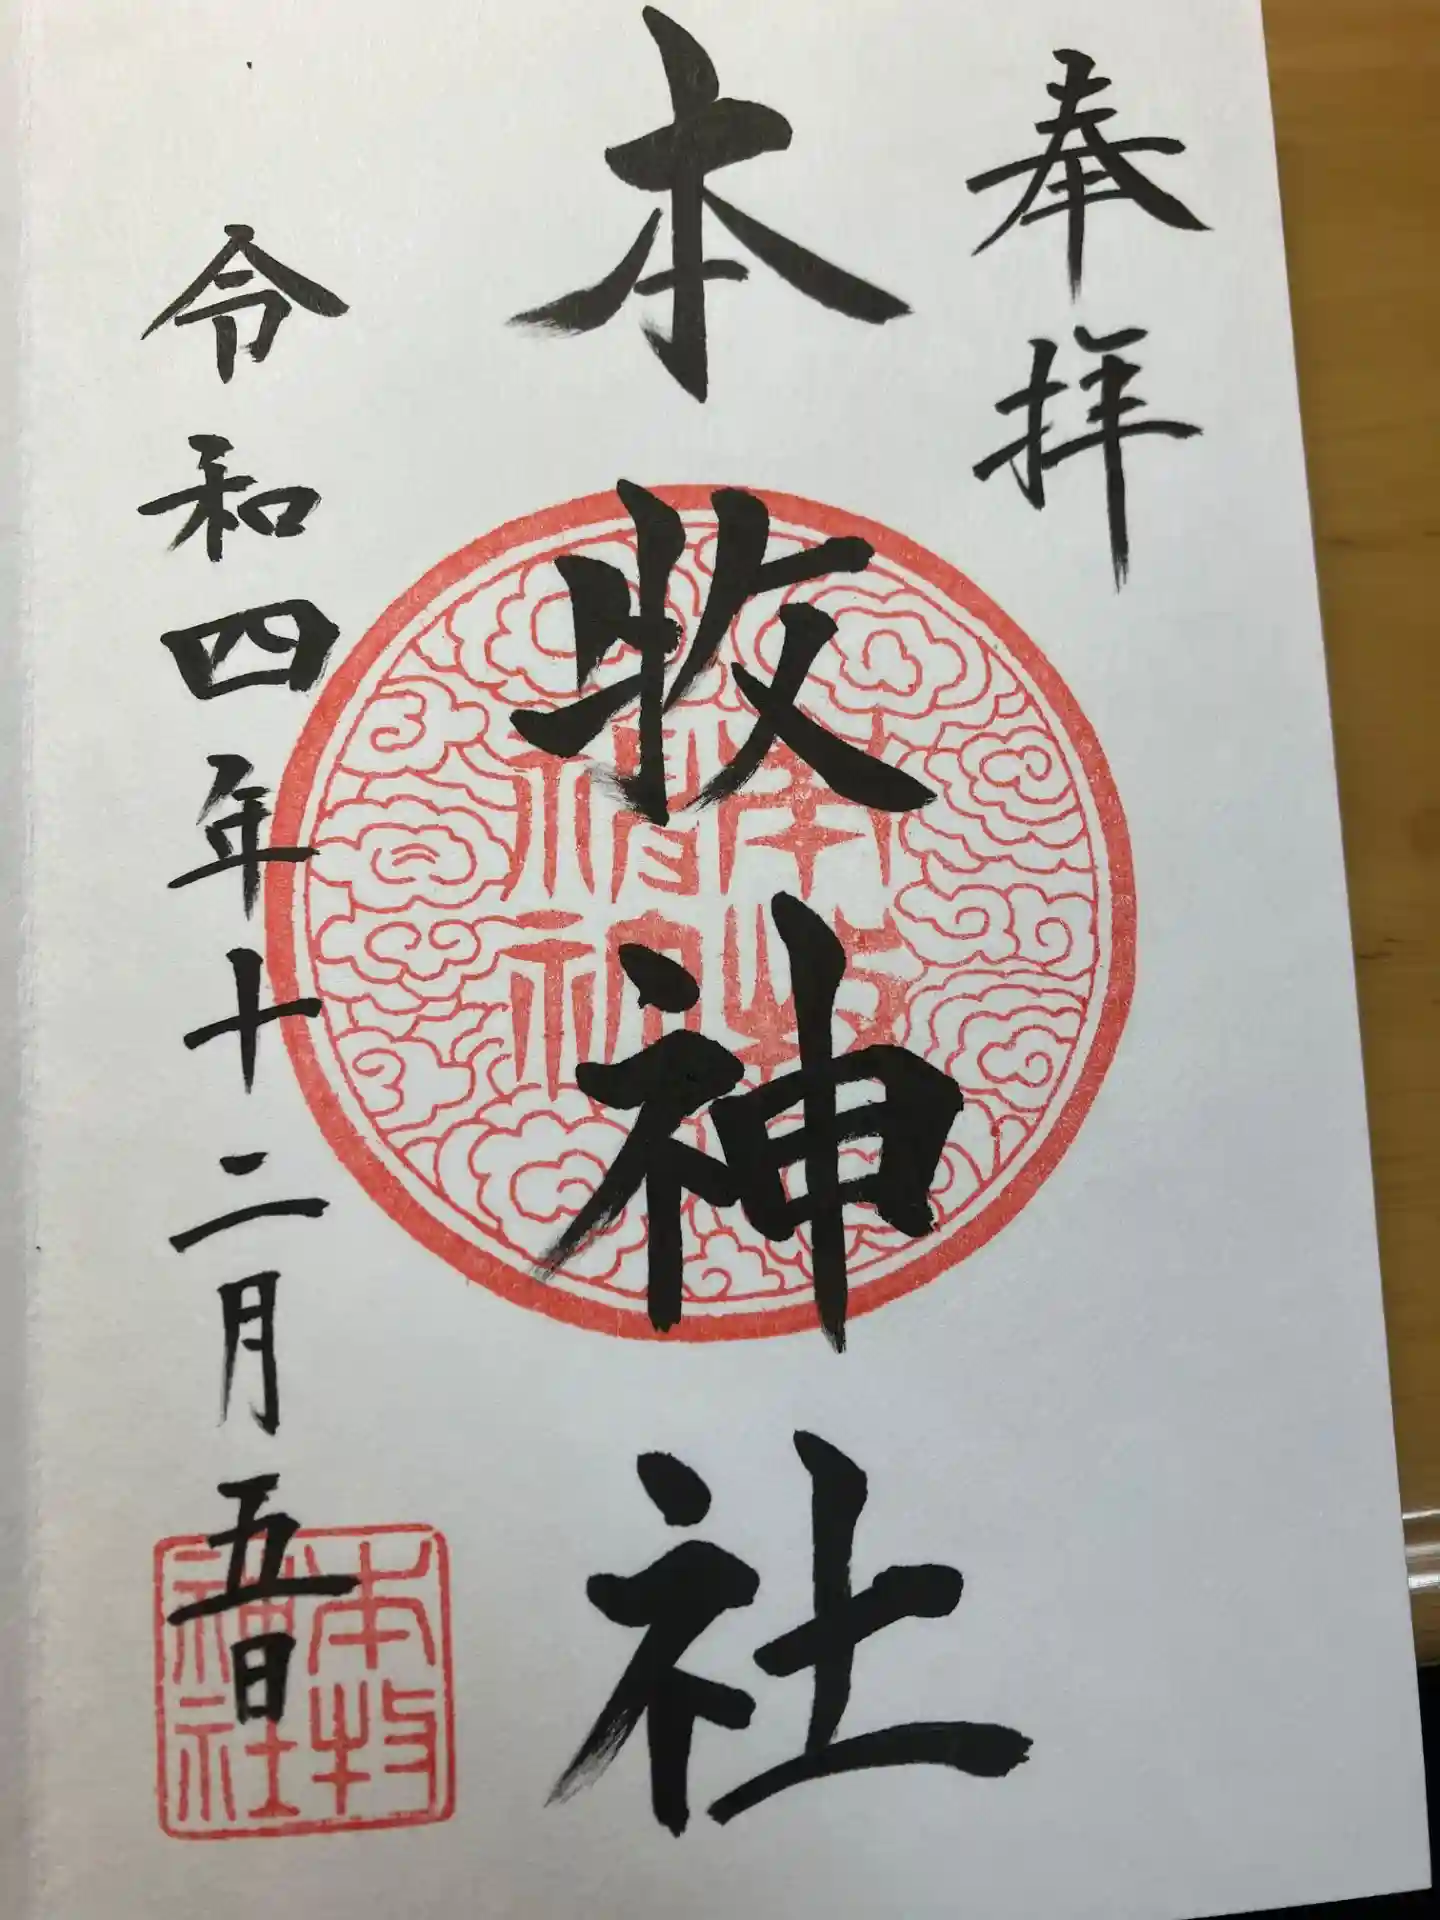 奉拝
本牧神社
令和四年十二月五日
本牧
神社